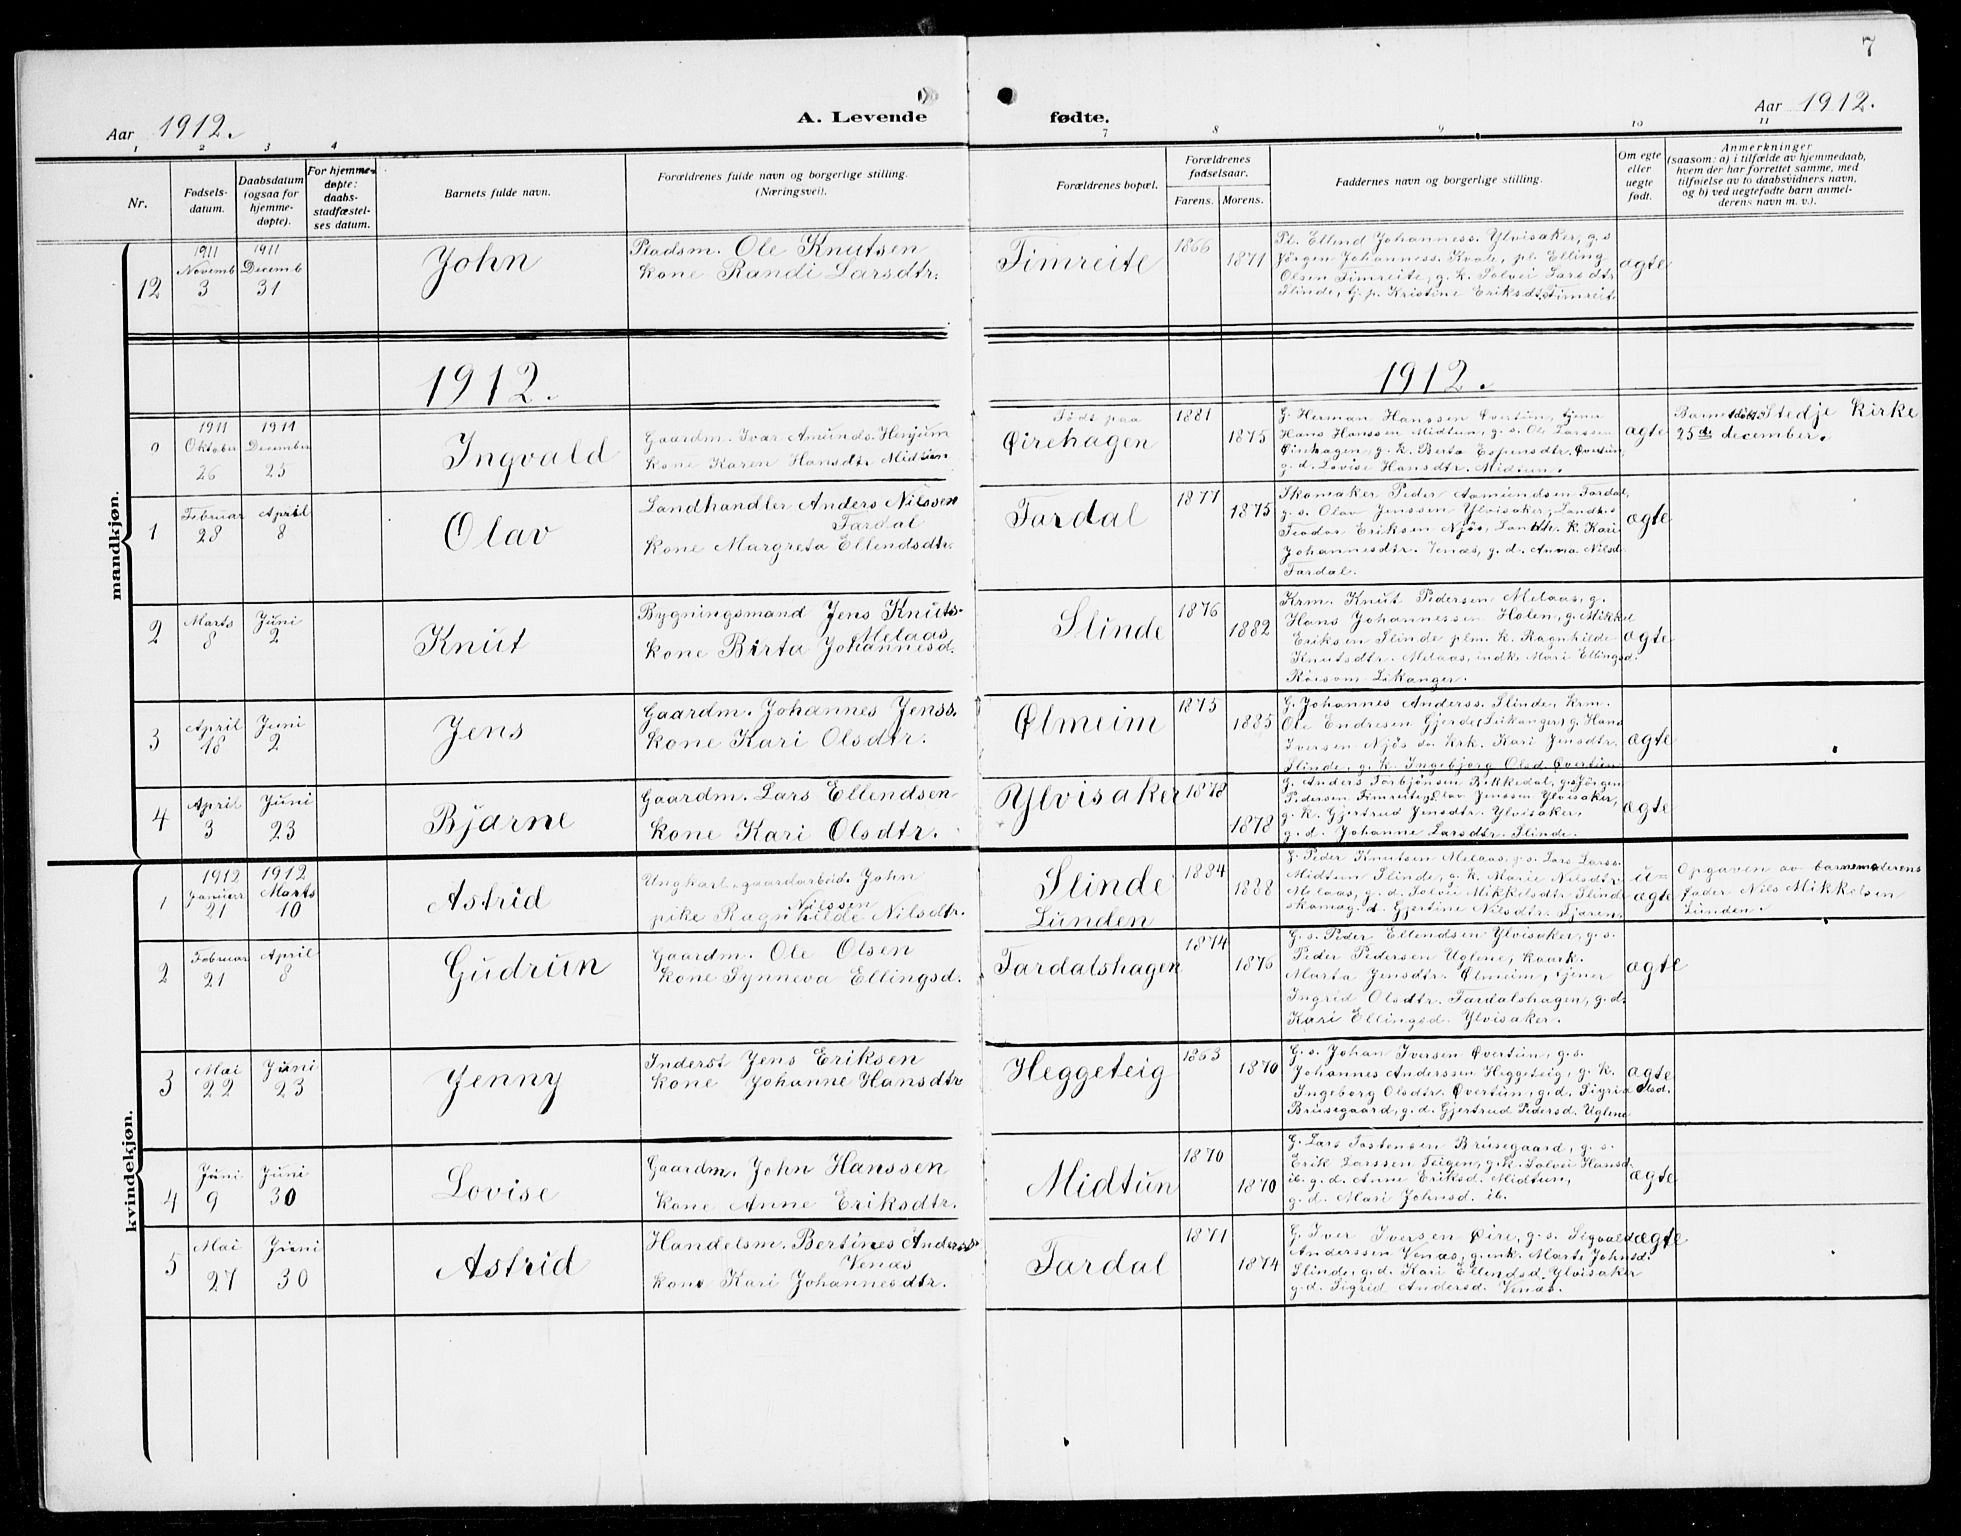 7
Aar 1912.
A. Levende
fødte.
Aar 1912.
1 2 3 4
7 8 9 10 11
Nr.
Fødsels-
datum.
Daabsdatum
(ogsaa for
hjemme-
døpte).
For hjemme-
døpte:
daabs-
stadfæstel-
ses datum.
Barnets fulde navn.
Forældrenes fulde navn og borgerlige stilling.
(Næringsvei).
Forældrenes bopæl.
Forældrenes
fødselsaar.
Farens. Morens.
Faddernes navn og borgerlige stilling.
Om egte
eller
uegte
født.
Anmerkninger
(saasom: a) i tilfælde av hjemmedaab,
hvem der har forrettet samme, med
tilføielse av to daabsvidners navn,
og b) ved uegtefødte barn anmel-
derens navn m. v.).
mandkjøn.
12
1911
Novemb
3
1911
Decemb
31
John
Pladsm. Ole Knutsen
kone Randi Larsdtr.
Timreite
1866
1871
Pl. Ellend Johanness. Ylvisaker, g. s
Jørgen Johanness. Kvale, pl. Elling
Olsen Timreite, g. k. Solvei Larsdtr
Slinde, tj. p. Kristine Eriksdt. Timreite
ægte
1912.
1912.
0
1911
Oktober
26
1911
December
25
Ingvald
Gaardm. Ivar Amunds. Henjum
kone Karen Hansdtr Midtun
Født paa
Øirehagen
1881
1875
G. Herman Hanssen Øvertun, tjener
Hans Hanssen Midtun, g. s. Ole Larssen
Øirehagen, g. k. Berta Espensdtr. Øvertun,
g. d. Lovise Hansdtr. Midtun.
ægte
Barnet døbt i Stedje kirke
25de december.
1
Februar
28
April
8
Olav
Landhandler Anders Nilssen
Fardal
kone Margreta Ellendsdtr.
Fardal
1877
1875
Skomaker Peder Aamundsen Fardal,
g. s. Olav Jenssen Ylvisaker, Landh. s
Teodor Eriksen Njøs, Landh. k. Kari
Johannesdtr. Venæs, g. d. Anna Nilsd.
Fardal.
ægte
2
Marts
8
Juni
2
Knut
Bygningsmand Jens Knuts.
Melaas
kone Birta Johannesd.
Slinde
1876
1882
Krm. Knut Pedersen Melaas, g.
Hans Johannessen Holen, g. Mikkel
Eriksen Slinde plm. k. Ragnhilde
Knutsdtr. Melaas, indk. Mari Ellingsd.
Røisom Leikanger.
ægte
3
April
18
Juni
2
Jens
Gaardm. Johannes Jenss.
kone Kari Olsdtr.
Ølmeim
1875
1885
G. Johannes Anderss. Slinde, krm.
Ole Endresen Gjerde (Leikanger) g. Hans
Iversen Njøs do krk. Kari Jensdtr.
Slinde, g. k. Ingebjorg Olsd. Øvertun
ægte
4
April
3
Juni
23
Bjarne
Gaardm. Lars Ellendsen
kone Kari Olsdtr.
Ylvisaker
1878
1878
g. Anders Torbjønsen Rekkedal, g. s. Jørgen
Pedersen Timreite, g. s. Olav Jenssen Ylvisaker,
g. k. Gjertrud Jensdtr. Ylvisaker,
g. d. Johanne Larsdtr. Slinde.
ægte
kvindekjøn.
1
1912
Januar
21
1912
Marts
10
Astrid
Ungkarl, gaardarbeid. John
Nilssen
pike Ragnhilde Nilsdtr.
Slinde
Lunden
1884
1888
g. Peder Knutsen Melaas, g. s. Lars Larss.
Midtun Slinde, g. k. Marie Nilsdtr
Melaas, g. d. Solvei Mikkelsdtr Slinde
skomag. d. Gjertine Nilsdtr.
u=
ægte
Opgaven av barnemoderens
fader Nils Mikkelsen
Lunden.
2
Februar
21
April
8
Gudrun
Gaardm. Ole Olsen
kone Synneva Ellingsd.
Fardalshagen
1874
1876
G. s. Peder Ellendsen Ylvisaker, g. s.
Peder Pedersen Uglene, kaark.
Marta Jensdtr. Ølmeim, tjener
Ingrid Olsdtr. Fardalshagen, g. d.
Kari Ellingsd. Ylvisaker.
ægte
3
Mai
22
Juni
23
Jenny
Inderst Jens Eriksen
kone Johanne Hansdtr
Heggeteig
1863
1870
G. s. Johan Iversen Øvertun, g. s.
Johannes Anderssen Heggeteig, g. k.
Ingeborg Olsdtr. Øvertun, g. d. Sigrid Olsd.
Brusegaard, g. d. Gjertrud Pedersd. Uglene
ægte
4
Juni
9
Juni
30
Lovise
Gaardm. John Hanssen
kone Anne Eriksdtr.
Midtun
1870
1870
G. Lars Tostensen Brusegaard, g. s.
Erik Larssen Teigen, g. k. Solvei Hansd.
ib. g. d. Anne Eriksd. Midtun,
g. d. Mari Johnsd. ib.
ægte
5
Mai
27
Juni
30
Astrid
Handelsm. Bertines Anderss.
Venæs
kone Kari Johannesdtr.
Fardal
1871
1874
G. Iver Iversen Øire, g. s. Sigvald
Anderssen Venæs, g. enk. Marti Johnsd.
Slinde, g. d. Kari Ellendsd. Ylvisaker
g. d. Sigrid Andersd. Venæs.
ægte